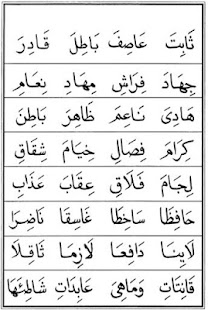 ثَابِتَ عَاصِفَ بَاطِلَ قَادِرَ
جِهَادَ فِرَاشِ مِهَادِ نِعَامِ
هَادِىَ نَاعِمَ ظَاهِرَ بَاطِنَ
كِرَامَ فِصَالِ خِيَامَ شِقَاقِ
لِجَامَ فَلَاقِ عِقَابَ عَذَابِ
حَافِظَا سَاخِطَا غَاسِقَا نَاضِرَا
لَايِنَا دَافِعَا لَازِمَا ثَاقِلَا
قَانِتَاتِ وَمَاهِىَ عَابِدَاتِ